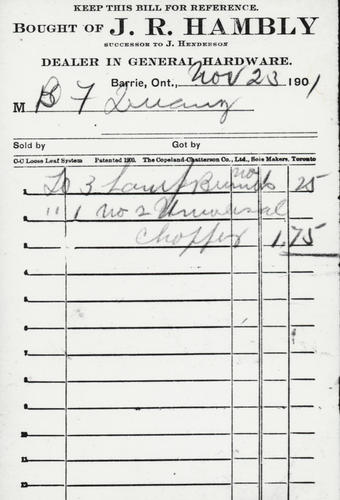 KEEP THIS BILL FOR REFERENCE.
BOUGHT OF J. R. HAMBLY
SUCCESSOR TO J. HENDERSON
DEALER IN GENERAL HARDWARE.
Barrie, Ont., Nov 23 1901
M B F
Sold by Got by
C-C Loose Leaf System Patented 1900. The Copeland-Chatterson Co., Ltd., Sole Makers, Toronto
1 To 3 Lamp no 25
2 " 1 no 2 Universal
3 Chopper 1.75
4
5
6
7
8
9
10
11
12